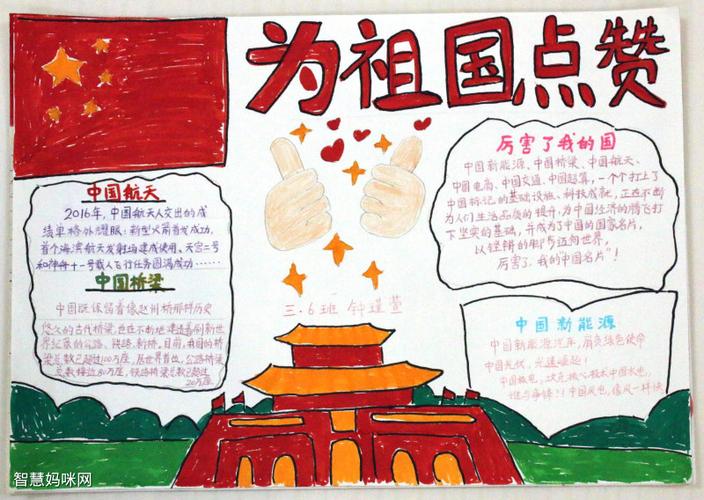 为祖国点赞
中国航天
2016年,中国航天人交出的成
绩单格外耀眼:新型火箭首发成功,
首个海滨航天发射场建成使用、天宫二号
和神舟十一号载人飞行任务圆满成功······
中国桥梁
中国既保留着像赵州桥那样历史
悠久的古代桥梁,也在不断地建造着刷新世
界纪录的公路、铁路新桥。目前,我国的桥
梁总数已超过100万座,居世界首位,公路桥梁
总数接近80万座,铁路桥梁已超过
20万座。
三.6班 钟瑾萱
厉害了我的国
中国新能源、中国桥梁、中国航天、
中国电商、中国交通、中国超算,一个个打上了
中国标记的基础设施、科技成就,正在不断
为人们生活品质的提升,为中国经济的腾飞打
下坚实的基础,并成为了中国的国家名片,
以铿锵的脚步迈向世界,
厉害了,我的中国名片"!
中国新能源
中国新能源汽车,肩负绿色使命
中国光伏,光速崛起!
中国核电,次克核心技术中国水电,
谁与争锋?!中国风电,像风一样快
智慧妈咪网